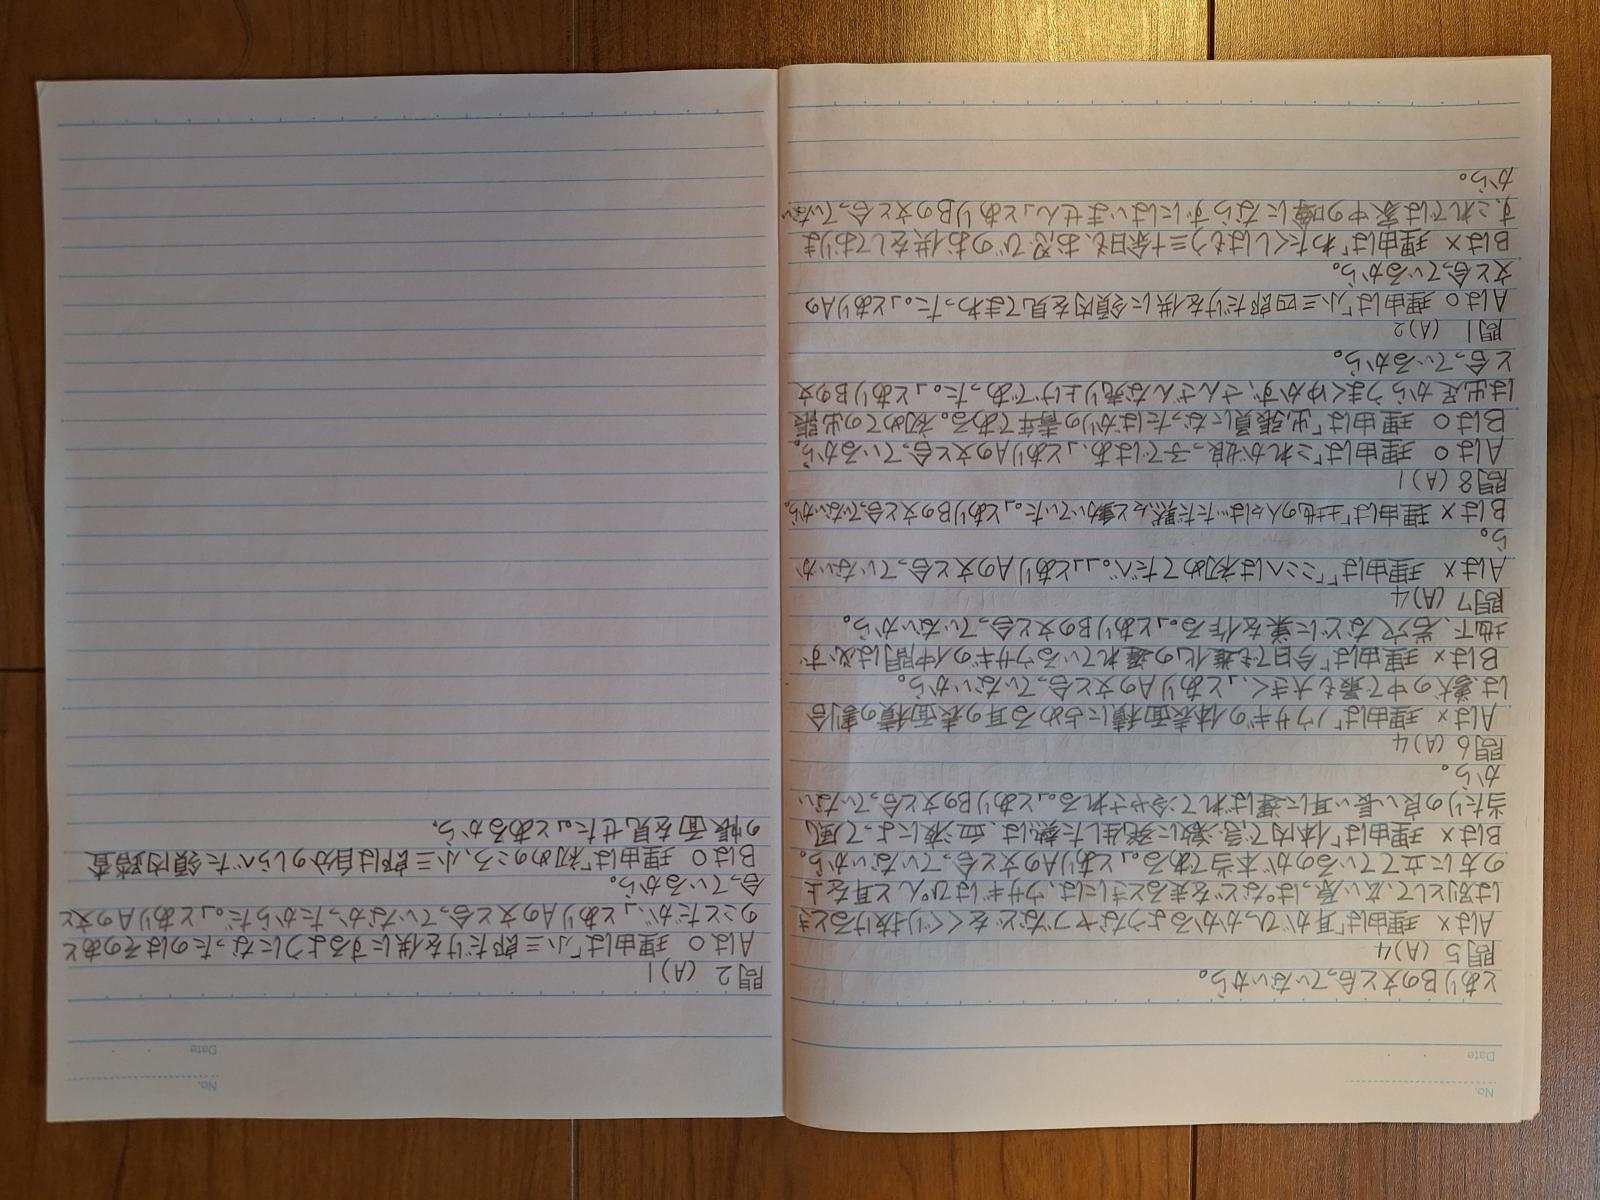 No.
Date
とありBの文と合っていないから。
問5 (A)4
Aは× 理由は「耳がひっかかるようなヤブなどをくぐり抜けるとき
は別として、広い原っぱなどを走るときには、ウサギはぴんと耳を上
の方に立てているのが本当である。」とありAの文と合っていないから。
Bは× 理由は「体内で急激に発生した熱は、血液によって風
当たりの良い長い耳に運ばれて冷やされる。」とありBの文と合っていない
から。
問6 (A)4
Aは× 理由は「ノウサギの体表面積に占める耳の表面積の割合
は、獣の中で最も大きく、」とありAの文と合っていないから。
Bは× 理由は「今日でも進化の遅れているウサギの仲間は必ず
地下、岩穴などに巣を作る。」とありBの文と合っていないから。
問7 (A)4
Aは× 理由は「「ここへは初めてだべ。」」とありAの文と合っていないか
ら。
Bは× 理由は「土地の人々はただ黙々と動いていた。」とありBの文と合っていないから。
問8 (A)1
Aは○ 理由は「これが娘っ子ではあ、」とありAの文と合っているから。
Bは○ 理由は「出張員になったばかりの青年である。初めての出張
は出足からうまくゆかず、さんざんな売り上げであった。」とありBの文
と合っているから。
問1 (A)2
Aは○ 理由は「小三四郎だけを供に領内を見てまわった。」とありAの
文と合っているから。
Bは× 理由は「わたくしはもう三十余日も、お忍びのお供をしておりま
す、これでは家中の噂にならずにはいません」とありBの文と合っていない
から。
No.
Date
問2 (A)1
Aは○ 理由は「小三郎だけを供にするようになったのはそのあと
のことだが、」とありAの文と合っていなかったからだ。」とありAの文と
合っているから。
Bは○ 理由は「初めのころ、小三郎は自分がしらべた領内踏査
の帳面を見せた。」とあるから。